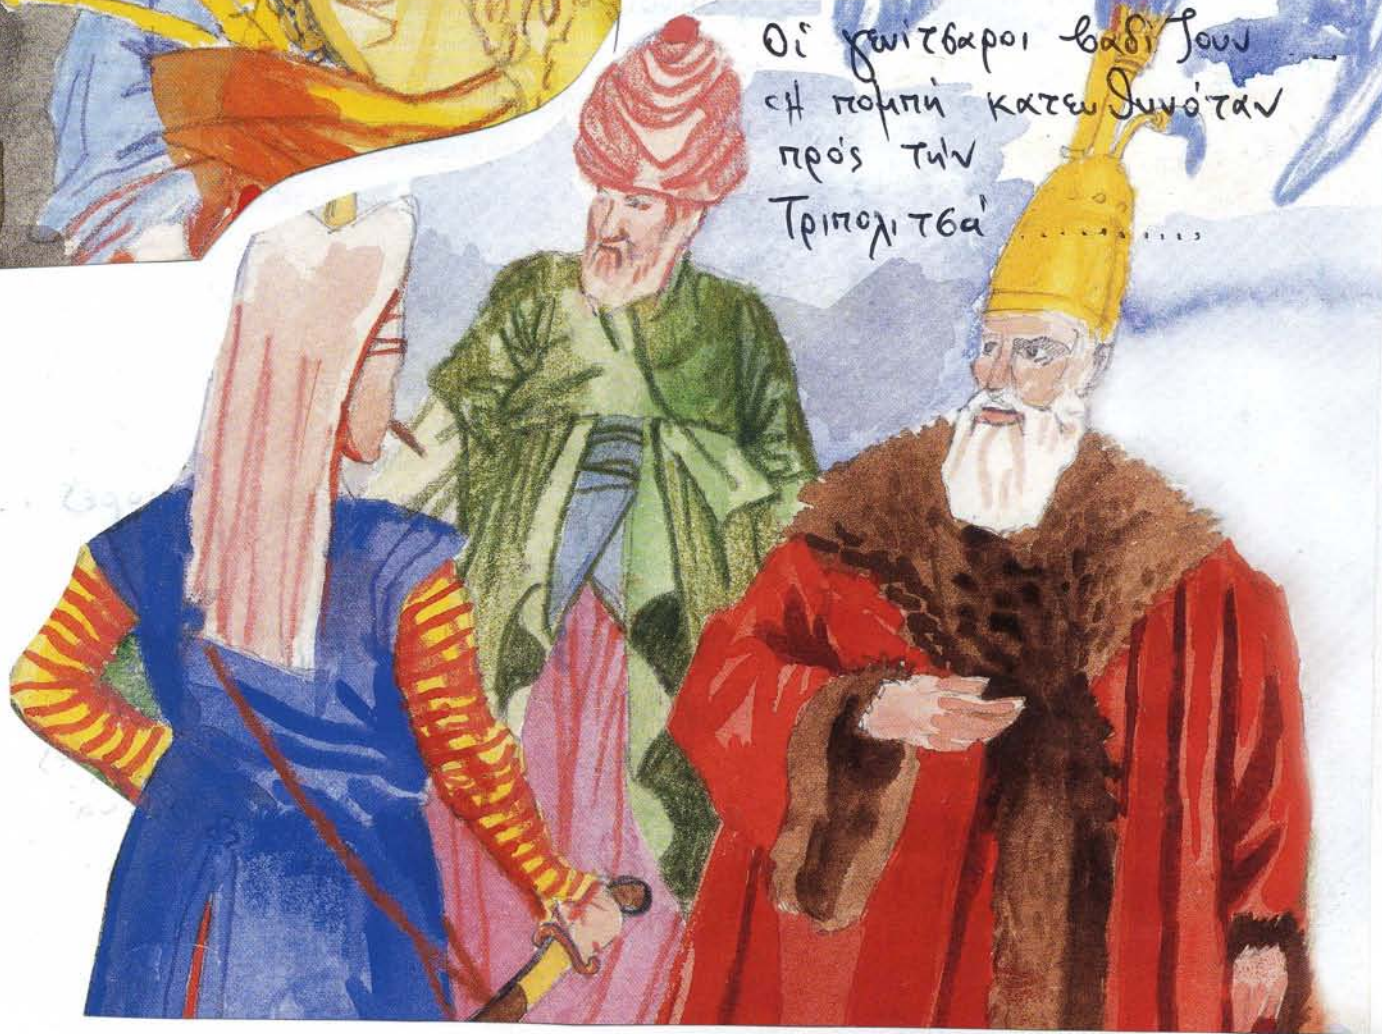 Οἱ γενίτσαροι βαδίζουν ....
Ἡ πομπή κατευθυνόταν
πρός τήν
Τριπολιτσά ............